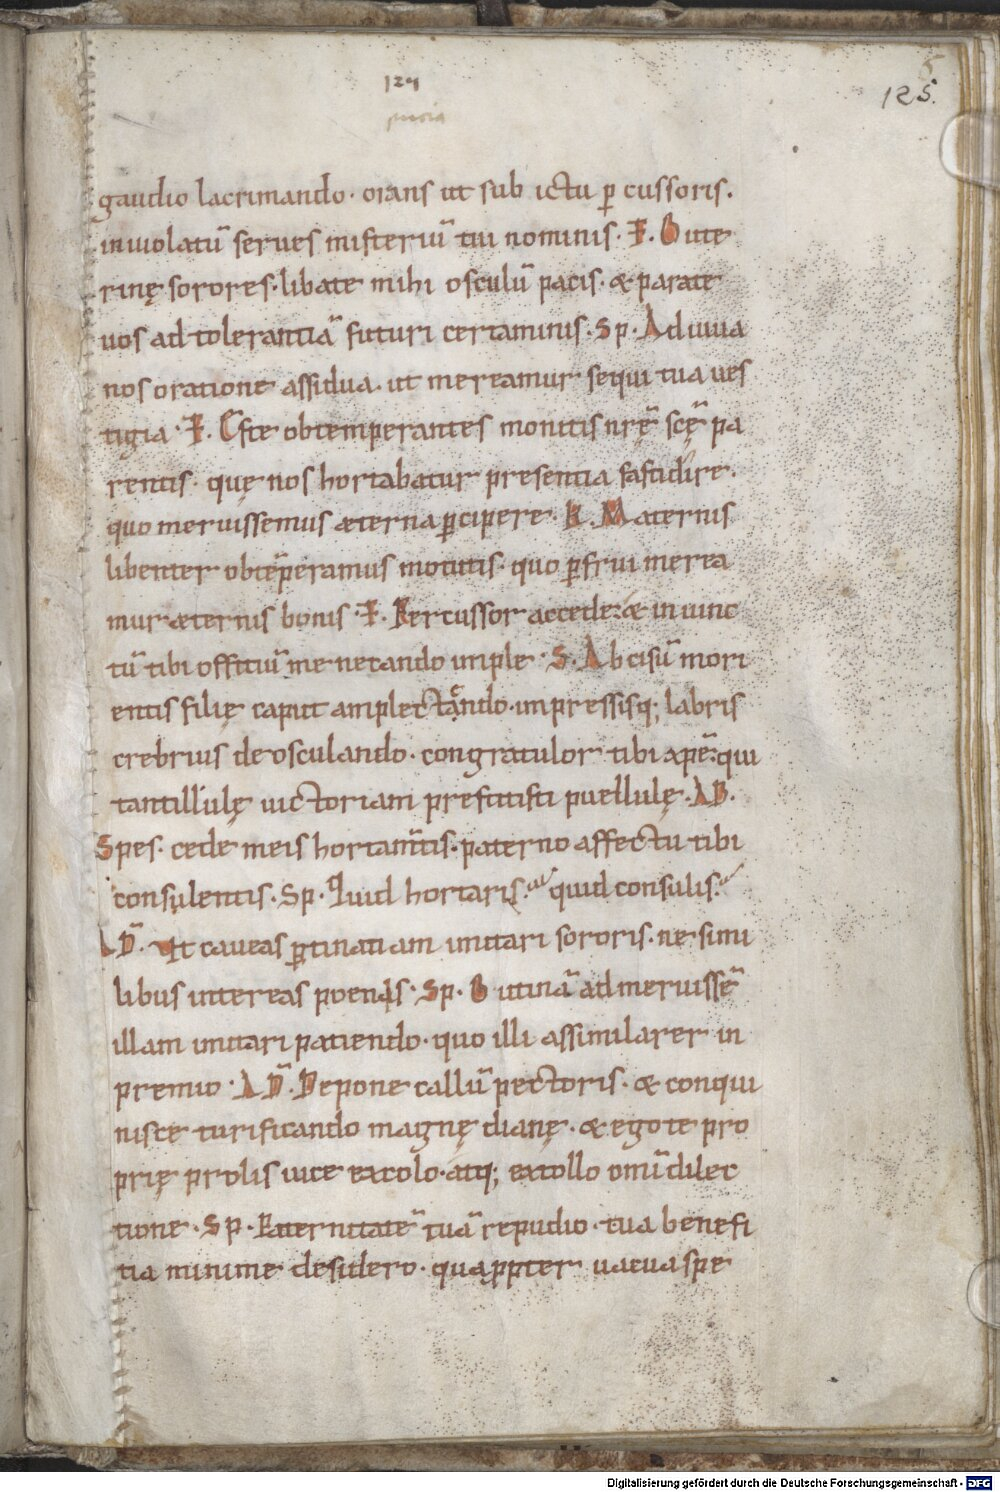 129
125.
gaudio lacrimando· orans ut sub ictu p̲ cussoris.
inuiolatū serues misteriū tui nominis· F. O ute
rinę sorores· libate mihi osculū pacis· & parate
uos ad tolerantiā futuri certaminis· Sp· Adiuua
nos oratione assidua· ut mereamur sequi tua ues
tigia· F. Este obtemperantes monitis nrę̄ scę̄ pa
rentis· quę nos hortabatur presentia fastidire·
quo meruissemus æterna p̲cipere· K. Maternis
libenter obtēperamus monitis· quo p̲frui merea
mur æternis bonis· F. Percussor accede: & iniunc
tū tibi offitiū me necando imple· S· Abcisū mori
entis filię caput amplectando· impressisq; labris
crebrius deosculando· congratulor tibi xp̄e: qui
tantillulę uictoriam prestitisti puellulę· AD̄.
Spes· cede meis hortam̄tis· paterno affectu tibi
consulentis· Sp· Quid hortaris· quid consulis·
AD̄. Ut caueas p̲tinatiam imitari sororis· ne simi
libus intereas poenis· Sp· O utinā admeruissē
illam imitari patiendo· quo illi assimilarer in
premio· AD̄. Depone callū pectoris· & conqui
nisce turificando magnę dianę· & ego te pro
prię prolis uice excolo· atq; extollo omī dilec
tione· Sp· Paternitatē tuā repudio· tua benefi
tia minime desidero· quapp̲ter uacua spe
Digitalisierung gefördert durch die Deutsche Forschungsgemeinschaft - DFG